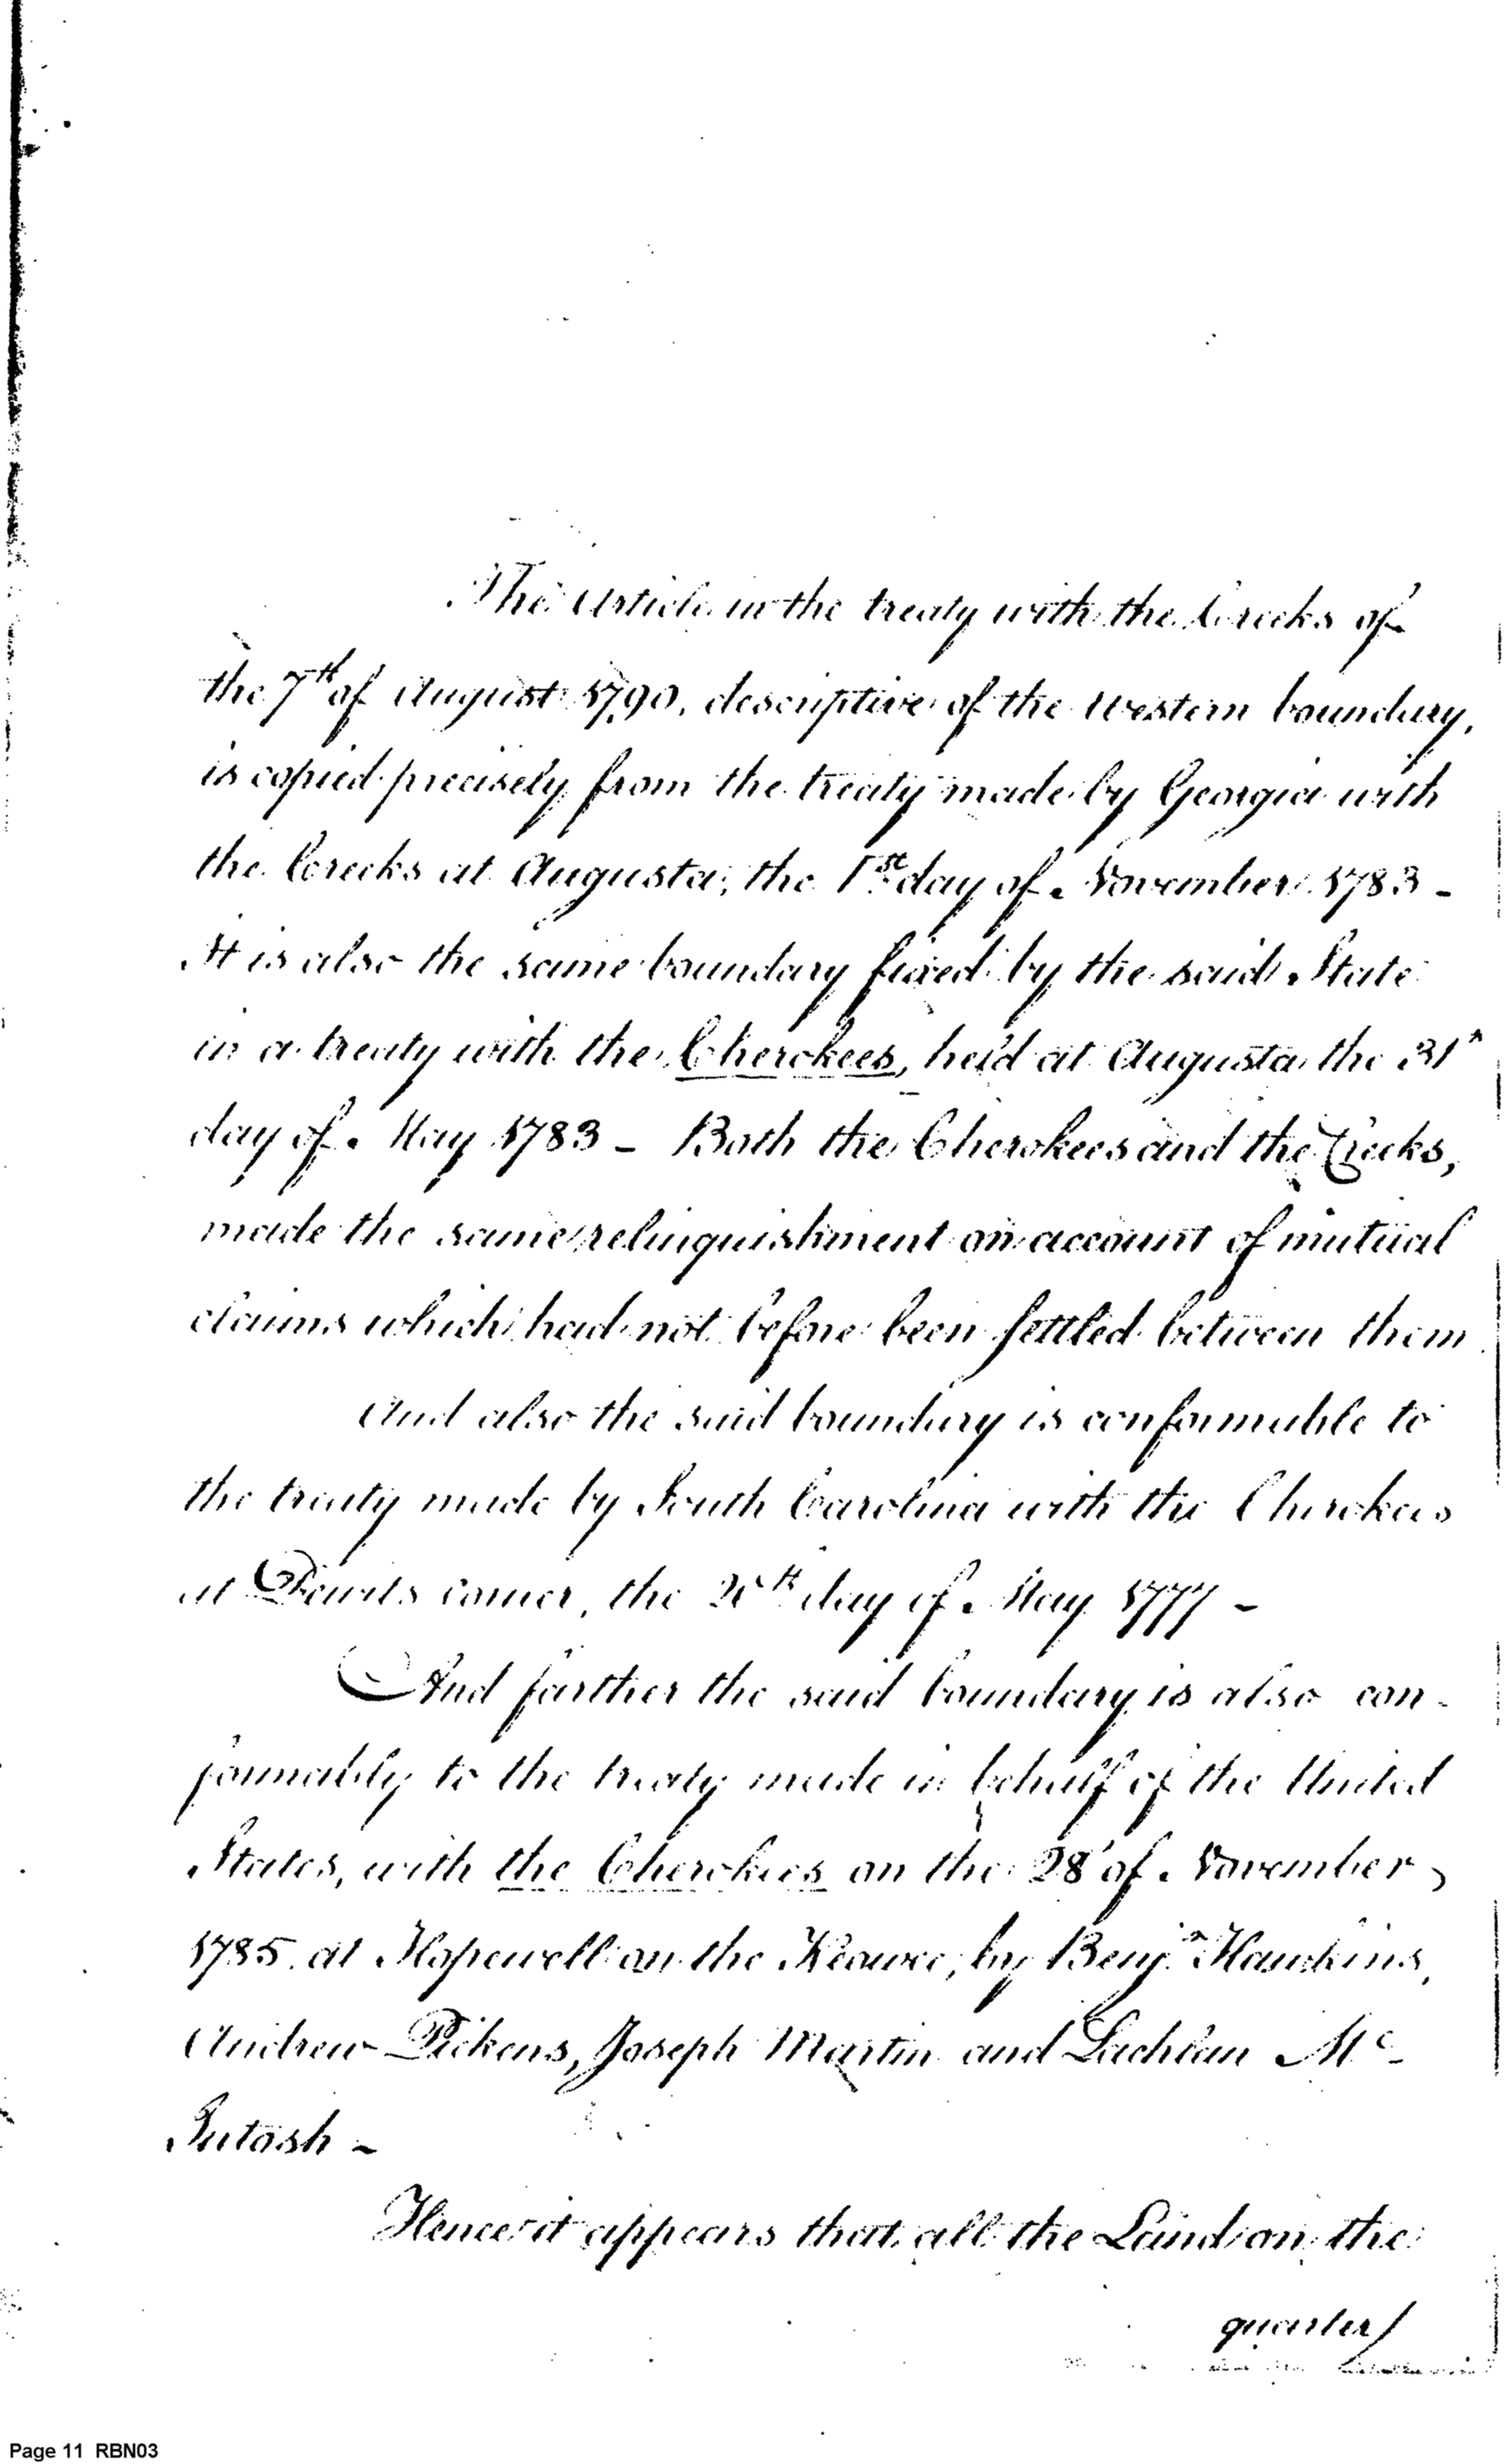 The Article in the treaty with the Creeks of
the 7th of August 1790, descriptive of the Western boundary,
is copied precisely from the treaty made by Georgia with
the Creeks at Augusta, the 1st day of November 1783 -
It is also the same boundary fixed by the said State
in a treaty with the Cherokees, held at Augusta the 31st
day of May 1783 - Both the Cherokees and the Creeks,
made the same relinquishment on account of mutual
claims which had not before been settled between them
And also the said boundary is conformable to
the treaty made by South Carolina with the Cherokees
at Dewits corner, the 20th day of May 1777 -
And farther the said boundary is also con-
formably to the treaty made in behalf of the United
States, with the Cherokees on the 28 of November,
1785. at Hopewell on the Keowee, by Benjn Hawkins,
Andrew Pickens, Joseph Martin and Lachlan Mc
Intosh -
Hence it appears that all the Land on the
quarter/
Page 11 RBN03